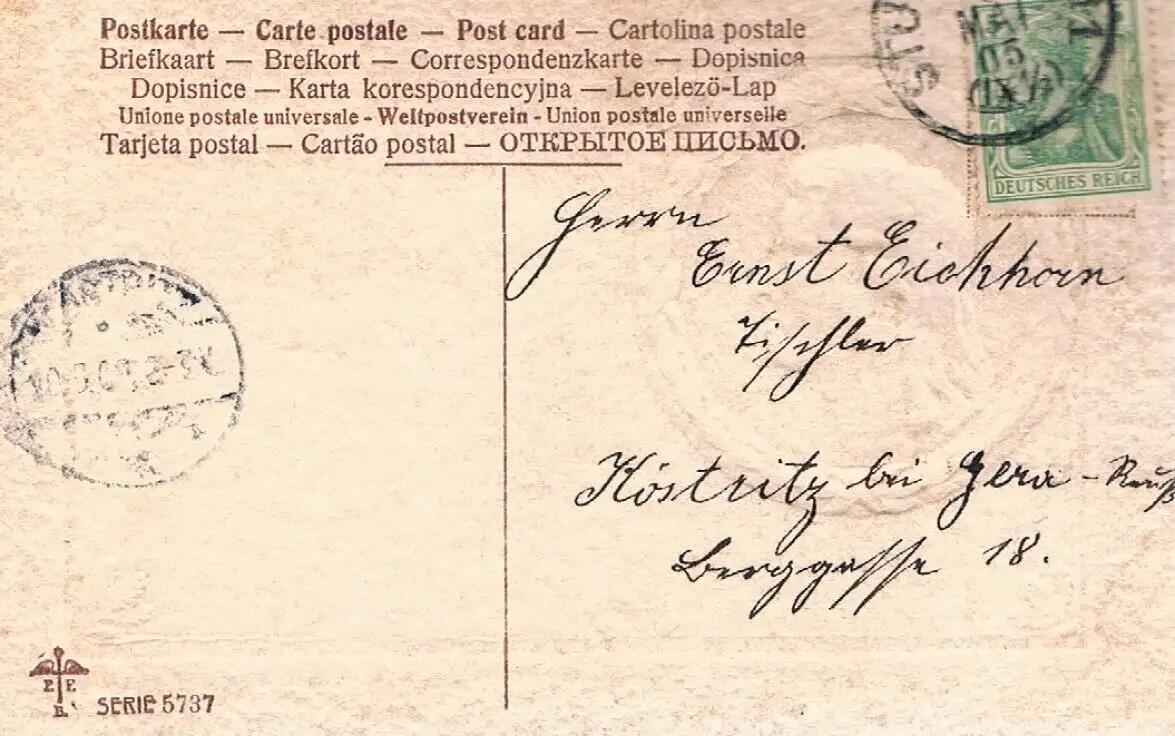 Postkarte — Carte postale — Post card — Cartolina postale
Briefkaart — Brefkort — Correspondenzkarte — Dopisnica
Dopisnice — Karta korespondencyjna — Levelezö-Lap
Unione postale universale - Weltpostverein - Union postale universelle
Tarjeta postal — Cartão postal — ОТКРЫТОЕ ПИСЬМО.
DEUTSCHES REICH
Herrn
Ernst Eichhorn
Tischler
Köstritz bei Gera - Reuß
Berggasse 18.
P. P.
B.
SERIE 5737